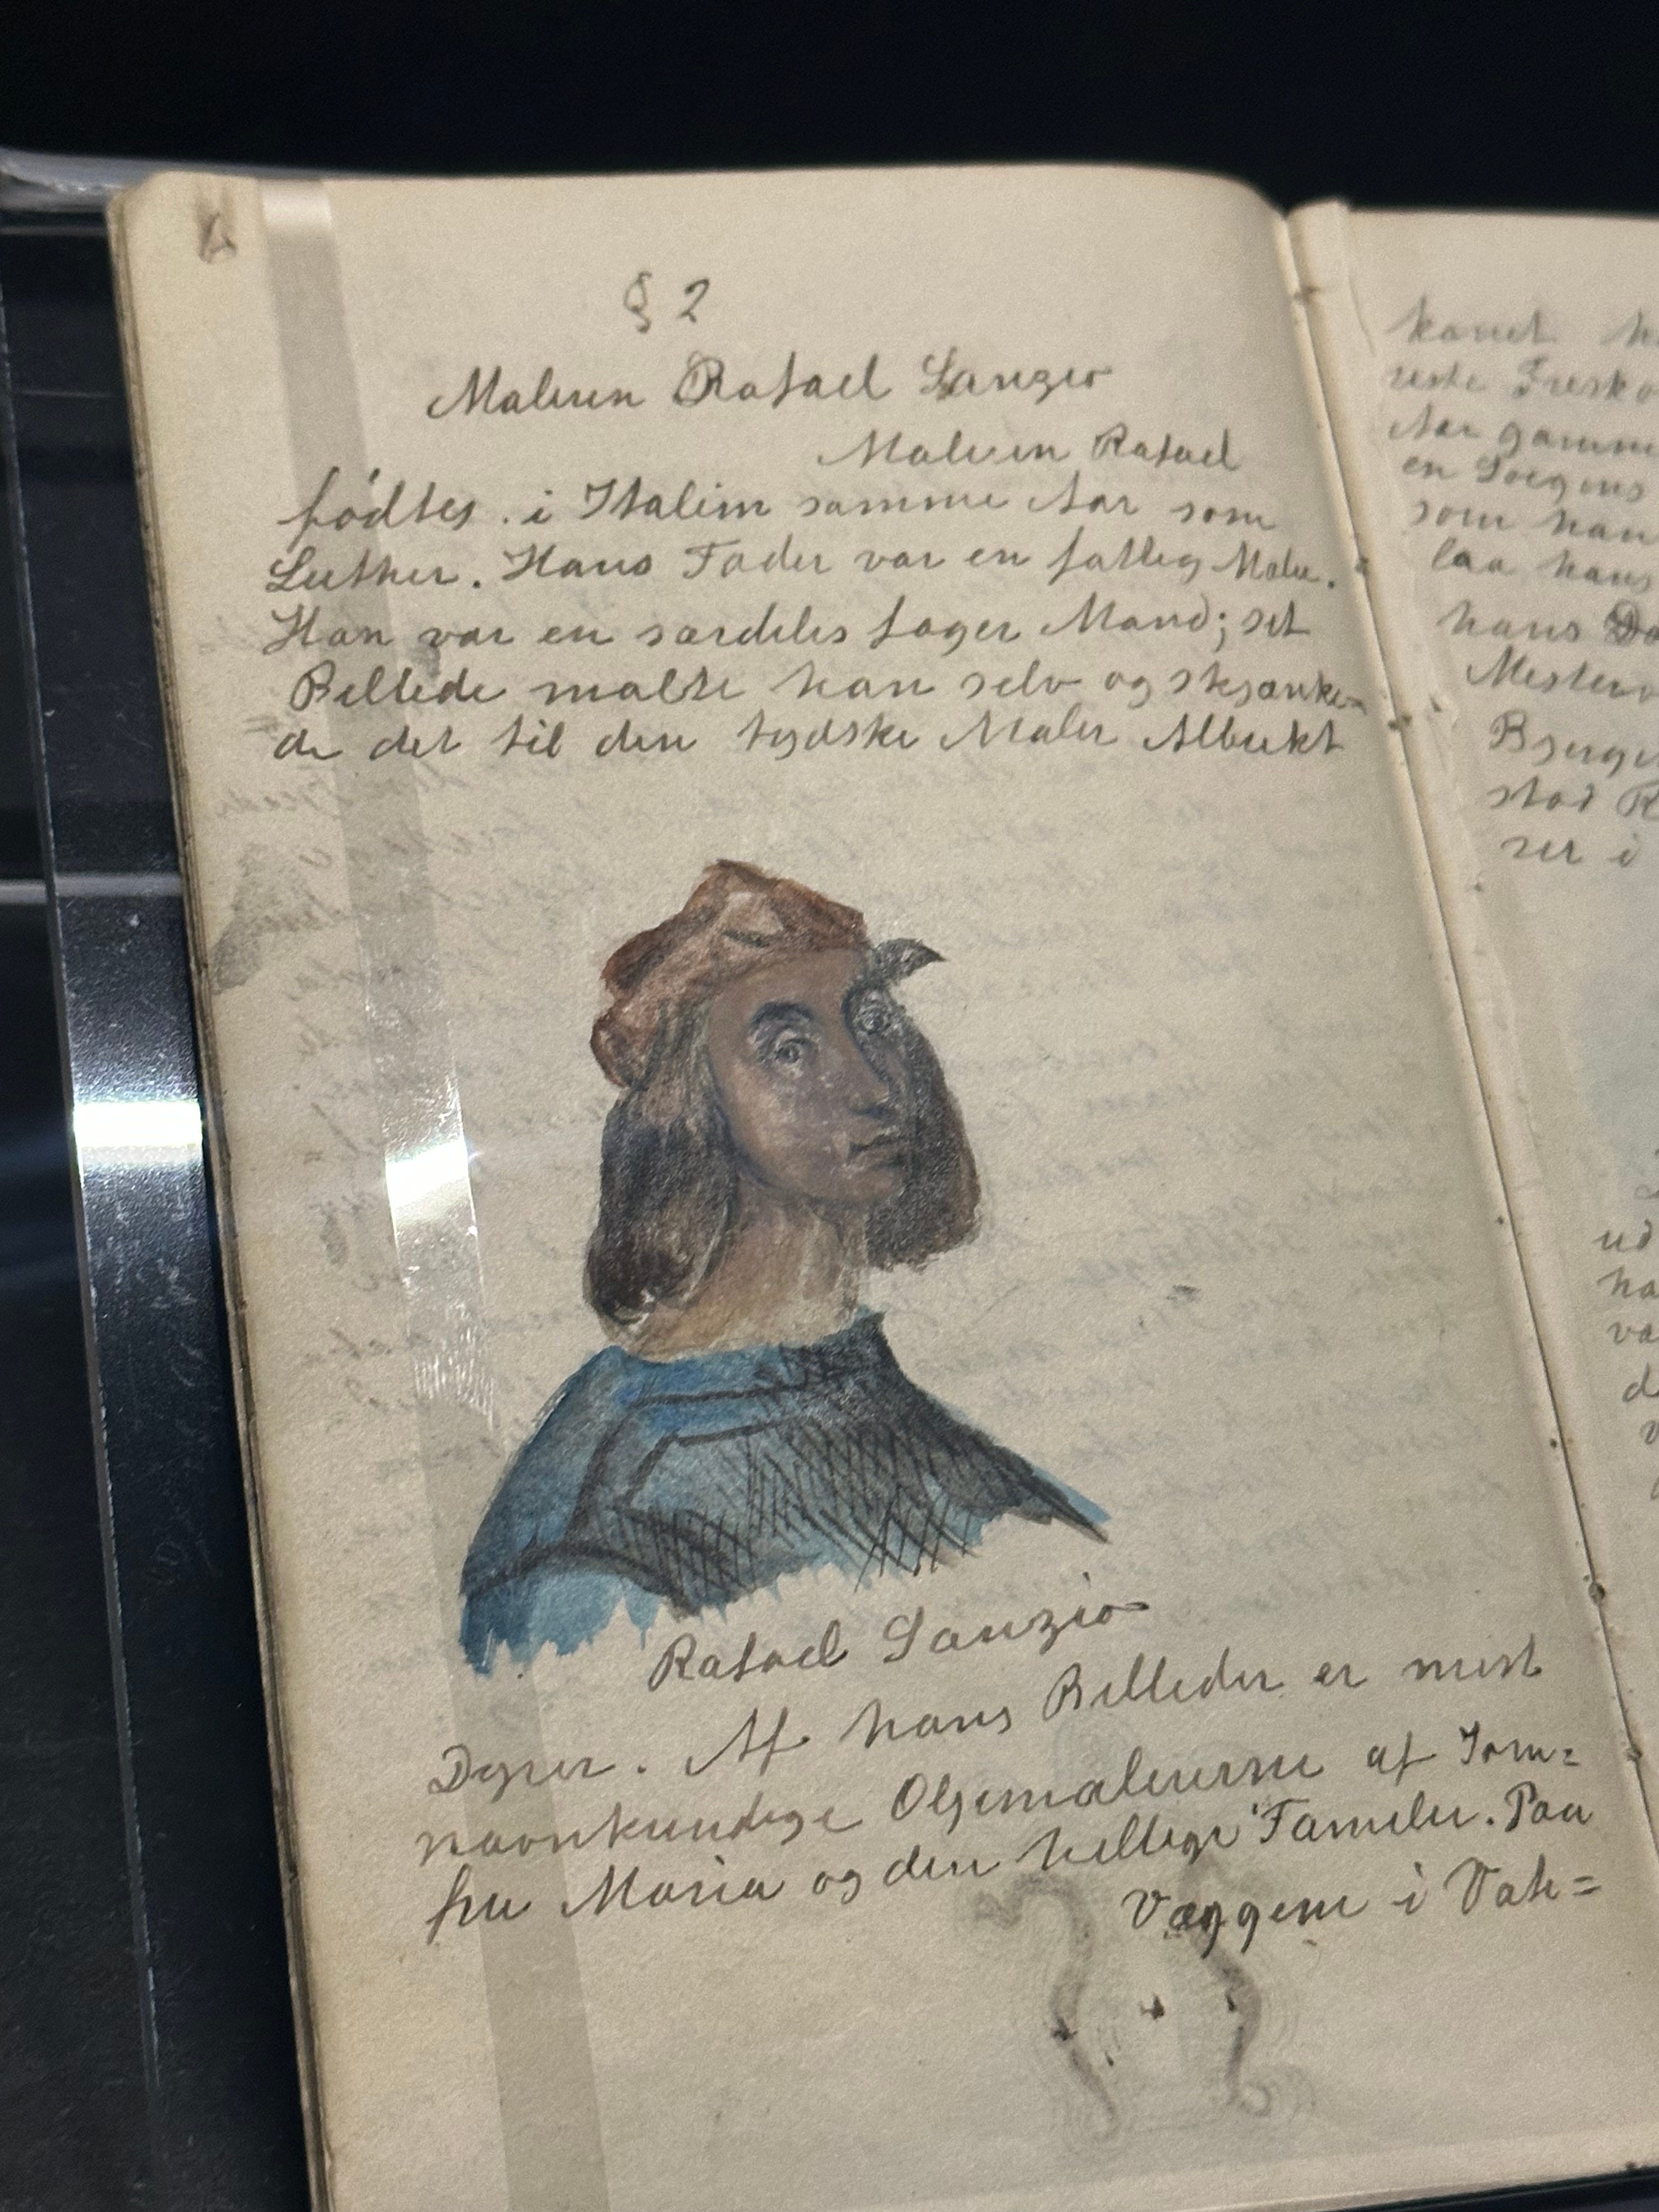 § 2
Maleren Rafael Sanzio
Maleren Rafael
födtes . i Italien samme Aar som
Luther. Hans Fader var en fattig Maler.
Han var en særdeles fager Mand; sit
Billede malte han selv og skjænke-
de det til den tydske Maler Albrekt
Rafael Sanzio
Dyrer. Af hans Billeder er mest
navnkundige Oljemalererne af Jom=
fru Maria og den hellige Familie. Paa
Væggene i Vati=
kanet
reste Fresko
Aar gamm
en
som han
laa hans
hans Do
Mesterv
Bjerge
stod R
rer i
ud
ha
va
d